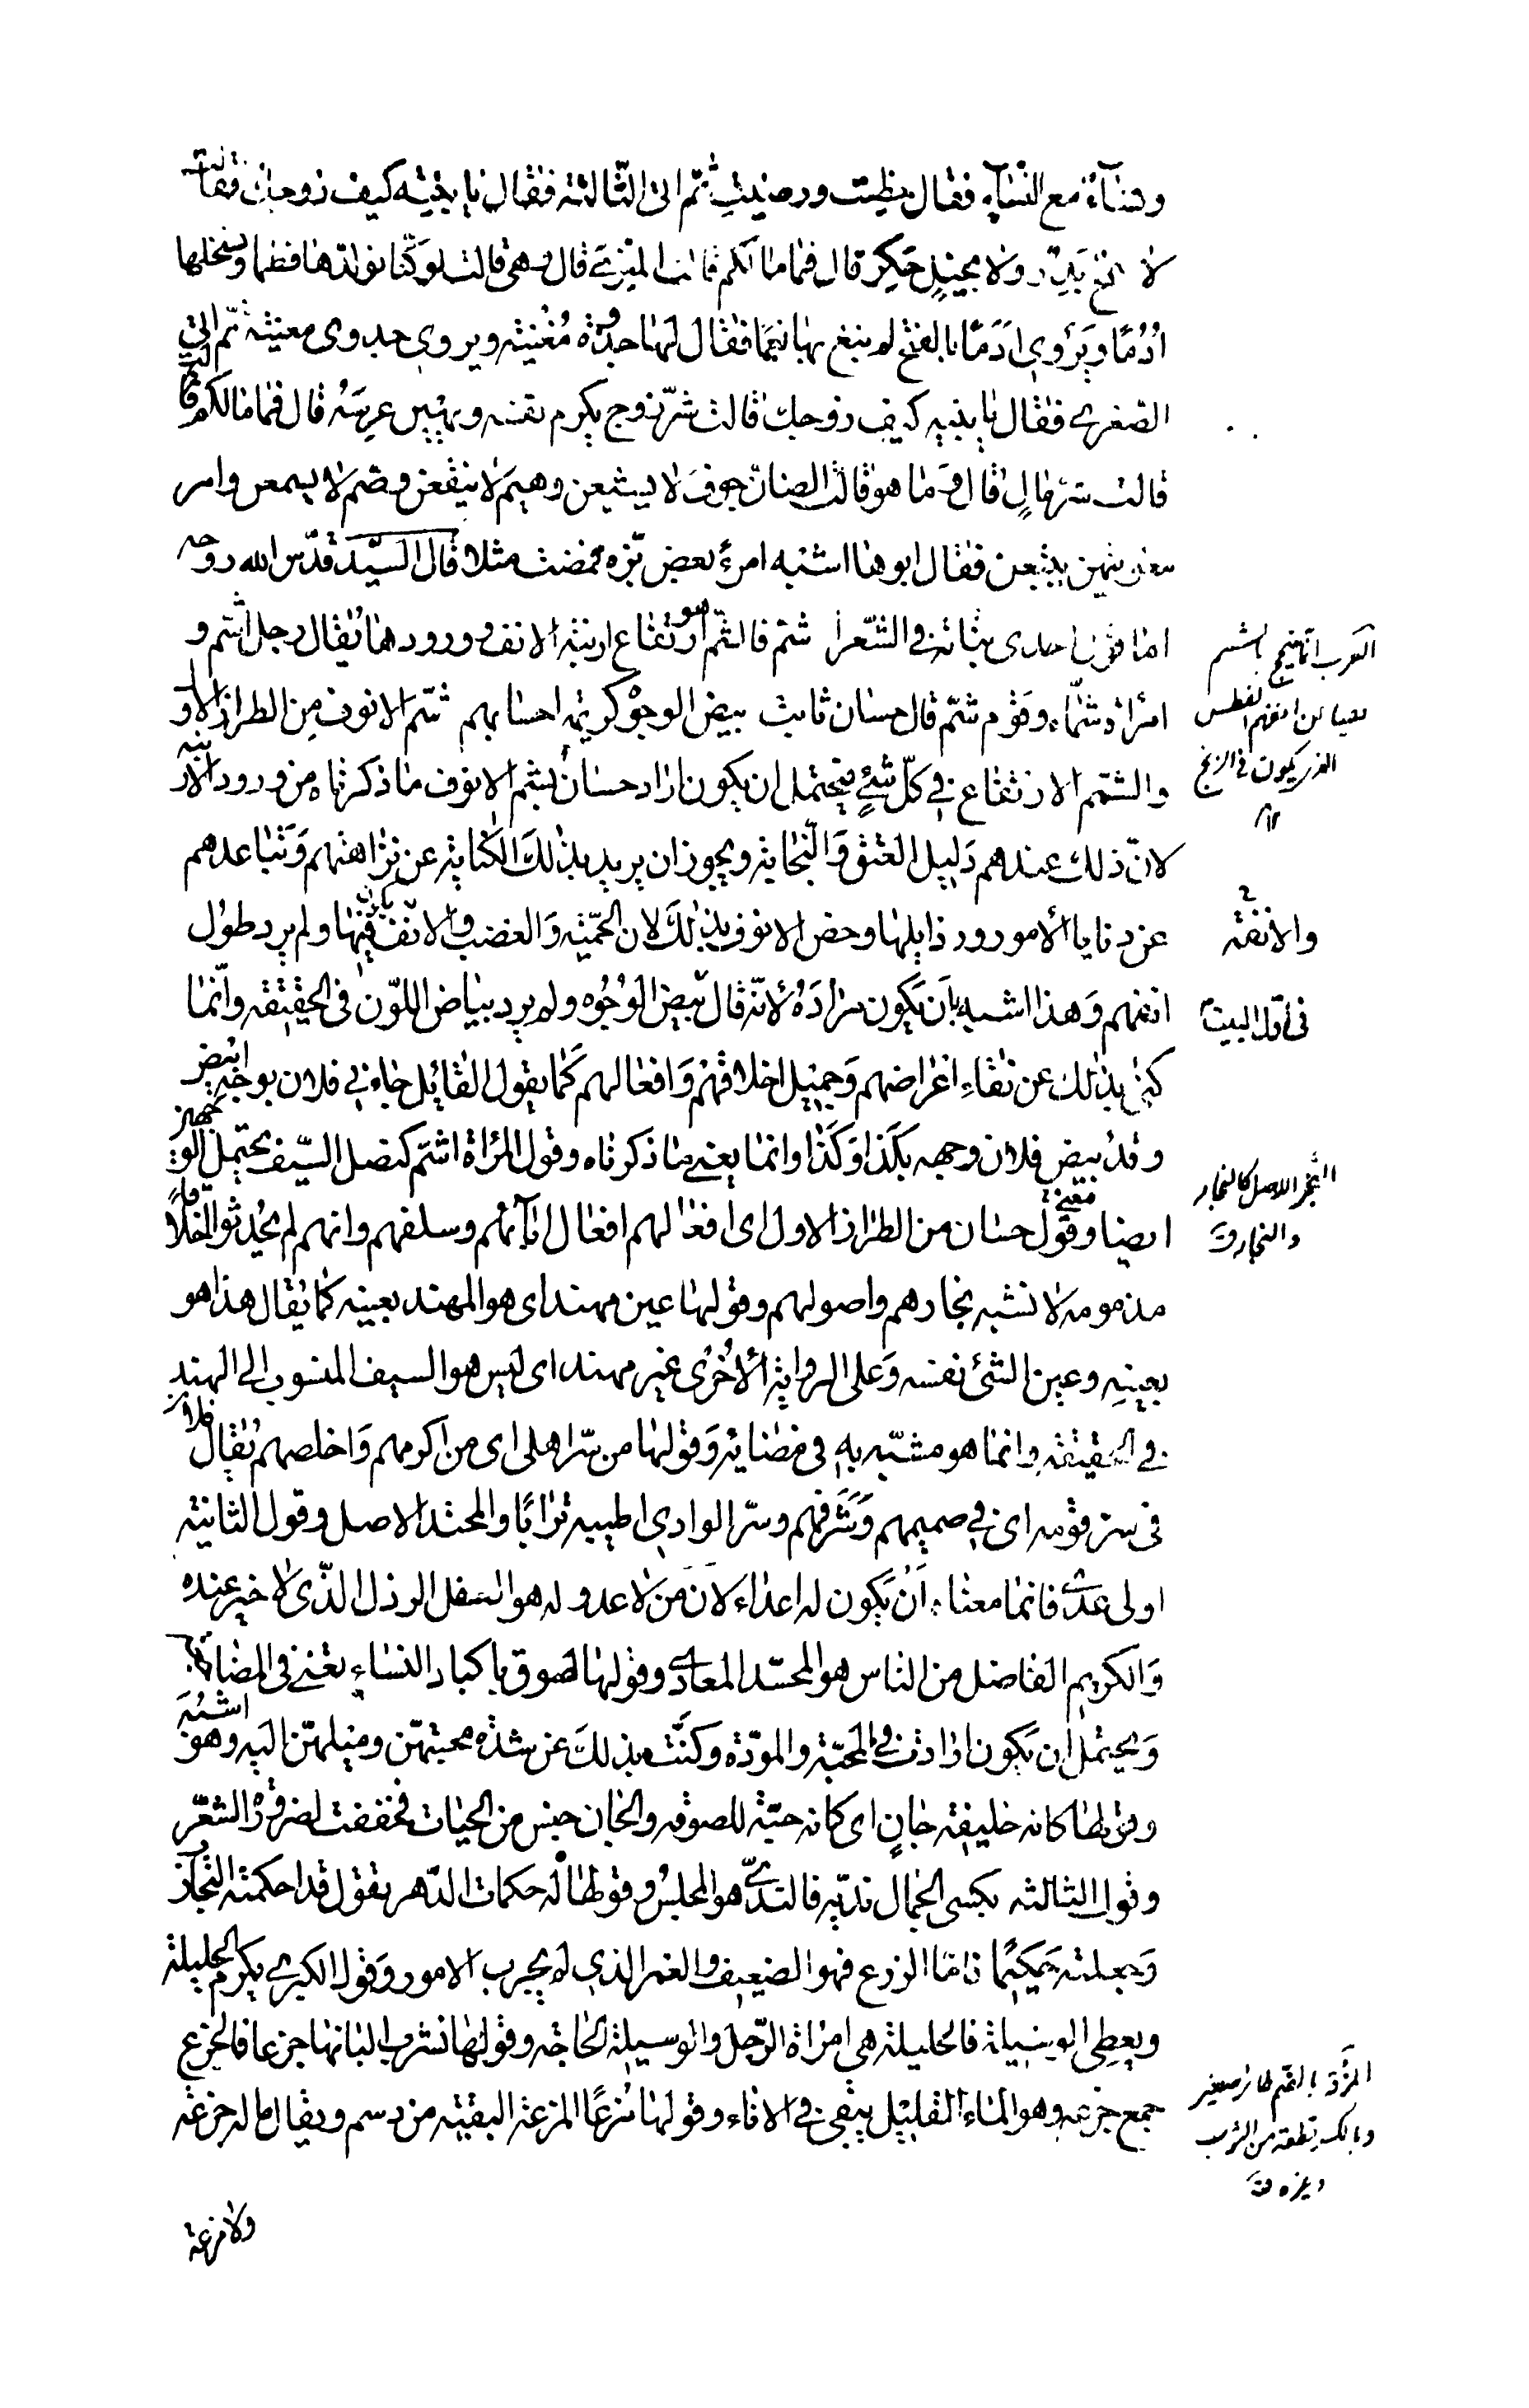 ونساء مع النساء فقال حظيت ورضيت ثم اتى الثالثة فقال يا بنيه كيف زوجك فقالت
لا سمح بذر ولا بخيل حكر قال فما مالكم قالت المعزى قال وما هي قالت لو كنا نولدها فطما ونسلخها
ادما ويروى ادما بالفتح لم نبغ بها نعما فقال لها جذوة مغنية ويروى جدوى مغنية ثم اتى
الصغرى فقال يا بنيه كيف زوجك قالت شر زوج يكرم نفسه ويهين عرسه قال فما مالكم
قالت شر مال قال وما هو قالت الضان جوف لا يشبعن وهيم لا ينقعن وصم لا يسمعن وامر
مغويتهن يتبعن فقال ابوها اشبه امرؤ بعض بزه فمضت مثلا قال السيد قدس الله روحه
اما قول احدى بناته في الشعر اشم فالشمم هو ارتفاع ارنبة الانف وورودها يقال رجل اشم و
امرأة شماء وقوم شم قال حسان ثابت بيض الوجوه كريمة احسابهم شم الانوف من الطراز الاول
والشمم الارتفاع في كل شئ فيحتمل ان يكون اراد حسان بشم الانوف ما ذكرناه من ورود الارنبة
لان ذلك عندهم دليل العتق والنجابة ويجوز ان يريد بذلك الكناية عن نزاهتهم وتباعدهم
عن دنايا الامور ورذايلها وخص الانوف بذلك لان الحمية والغضب والانف يكون فيها ولم يرد طول
انفهم وهذا اشبه بان يكون مراده لانه قال بيض الوجوه ولم يرد بياض اللون في الحقيقة وانما
كنى بذلك عن نقاء اعراضهم وجميل اخلاقهم وافعالهم كما يقول القائل جاءني فلان بوجه ابيض
وقد بيض فلان وجهه بكذا وكذا وانما يعني ما ذكرناه وقول المراة اشم كنصل السيف يحتمل الوجهين
ايضا ومعنى قول حسان من الطراز الاول اى افعالهم افعال ابآئهم وسلفهم وانهم لم يحدثوا اخلاقا
مذمومة لا تشبه نجارهم واصولهم وقولها عين مهند اى هو المهند بعينه كما يقال هذا هو
بعينه وعين الشئ نفسه وعلى الرواية الاخرى غير مهند اى ليس هو السيف المنسوب الى الهند
في الحقيقة وانما هو مشبه به في مضائه وقولها من سر اهلى اى من اكرمهم واخلصهم يقال فلان
في سر قومه اى في صميمهم وشرفهم وسر الوادي اطيبه ترابا والمحتد الاصل وقول الثانية
اولى عدى فانما معناه ان يكون له اعداء لان من لا عدو له هو السفل الرذل الذى لا خير عنده
والكريم الفاضل من الناس هو المحسد المعادى وقولها لصوق باكباد النساء يعني في المضاجعة
ويحتمل ان يكون ارادت في المحبة والمودة وكنت بذلك عن شدة محبتهن وميلهن اليه وهو اشبه
وقولها كانه خليفة جان اى كانه حية للصوقه والجان جنس من الحيات فخففت لضرورة الشعر
وقول الثالثة يكسى الجمال نديه فالندى هو المجلس وقولها له حكمات الدهر تقول قد احكمته التجارب
وجعلته حكيما فاما الزرع فهو الضعيف والغمر الذي لم يجرب الامور وقول الكبرى يكرم الحليلة
ويعطى الوسيلة فالحليلة هي امراة الرجل والوسيلة الحاجة وقولها نشرب البانها جزعا فالجزع
جمع جزعة وهو الماء القليل يبقى في الاناء وقولها مزعا المزعة البقية من دسم ويقال ماله جزعة
ولا مزعة
والانفة
في اول البيت
النجر الاصل كالنجار
والنجار ق